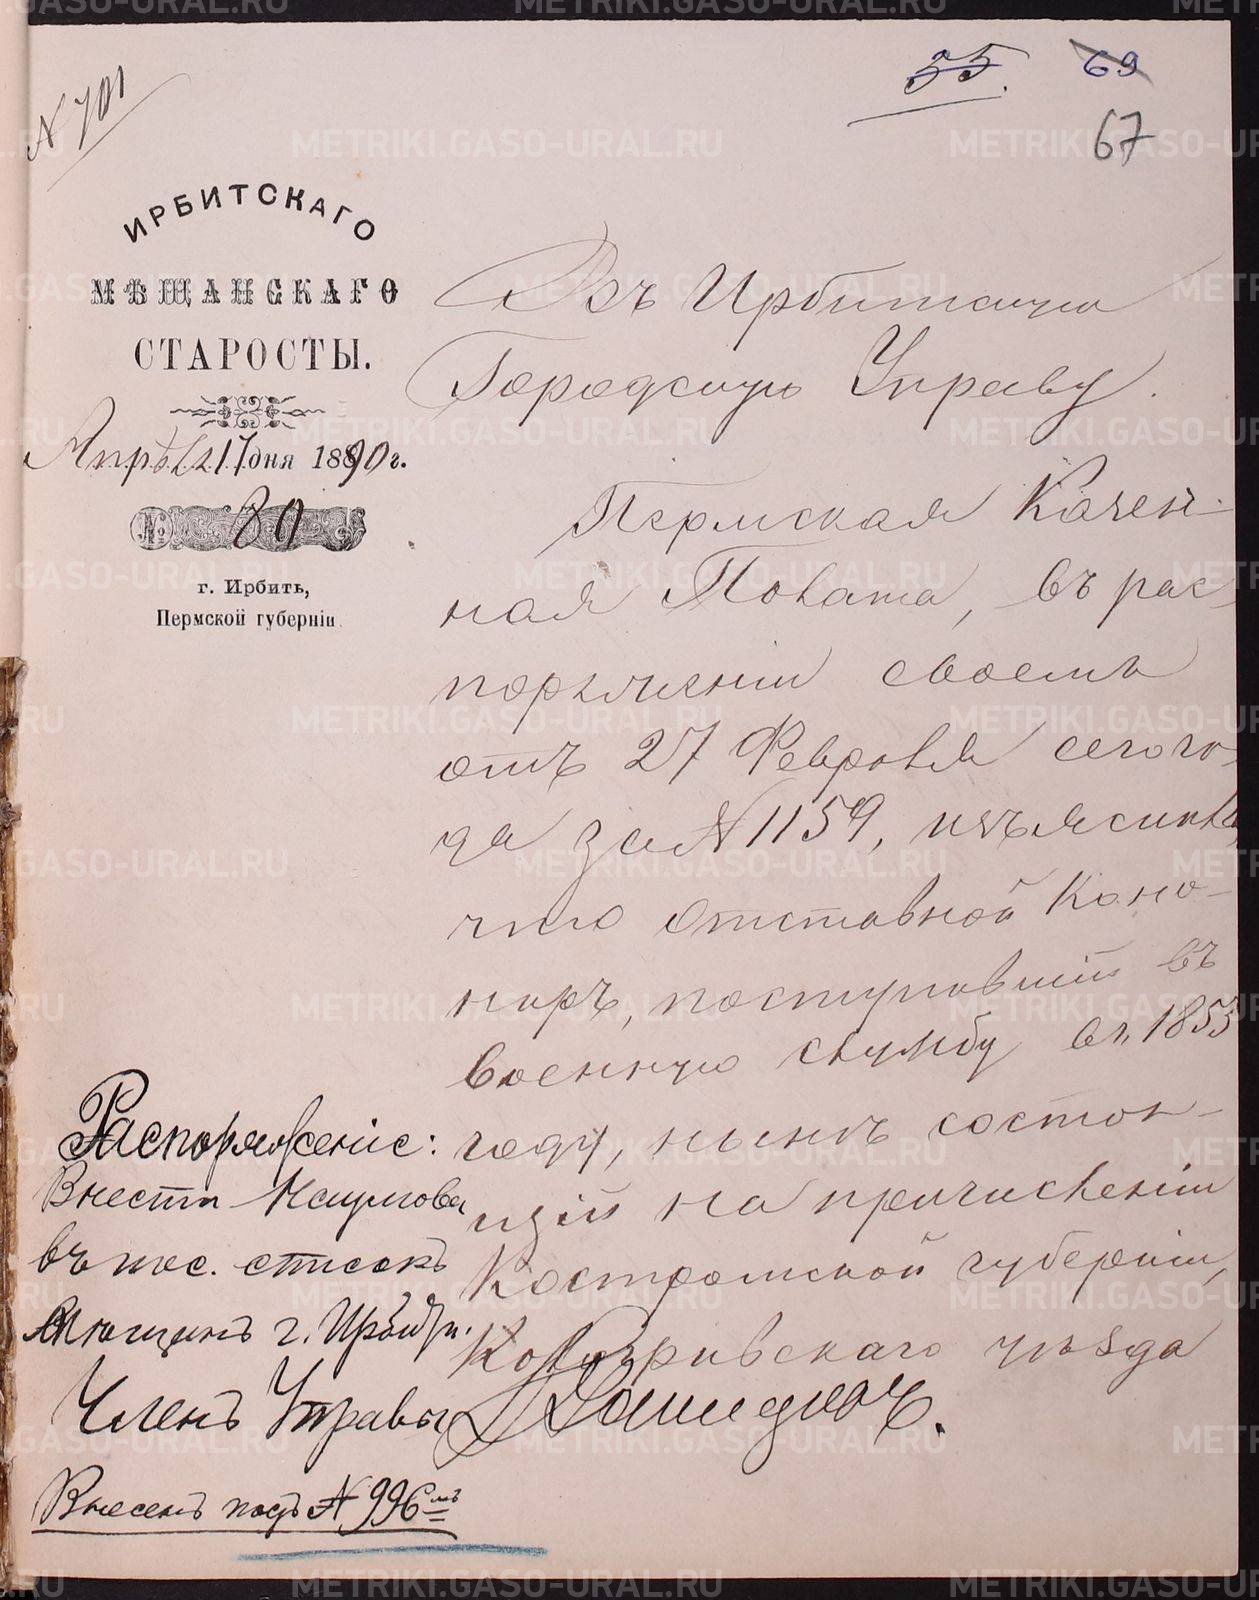 55.
69
67
N 701
ИРБИТСКАГО
МѢЩАНСКАГО
СТАРОСТЫ.
Апрѣля 17 дня 1890 г.
№ 80
г. Ирбить,
Пермской губерніи
Въ Ирбитскую
Городскую Управу.
Пермская Казен-
ная Полата, въ рас
поряженіи своемъ
отъ 27 Февраля сего го-
да за N 1159, изъяснила
что отставной Кано-
ниръ, поступившій въ
военную службу въ 1853
году, нынѣ состоя-
щій на причисленіи
Костромской губерніи,
Кологривскаго уѣзда
Распоряженіе:
Внести Наумова
въ пос. списокъ
мѣщанъ г. Ирбити.
Членъ Управы
Внесенъ подъ N 996мъ
METRIKI.GASO-URAL.RU